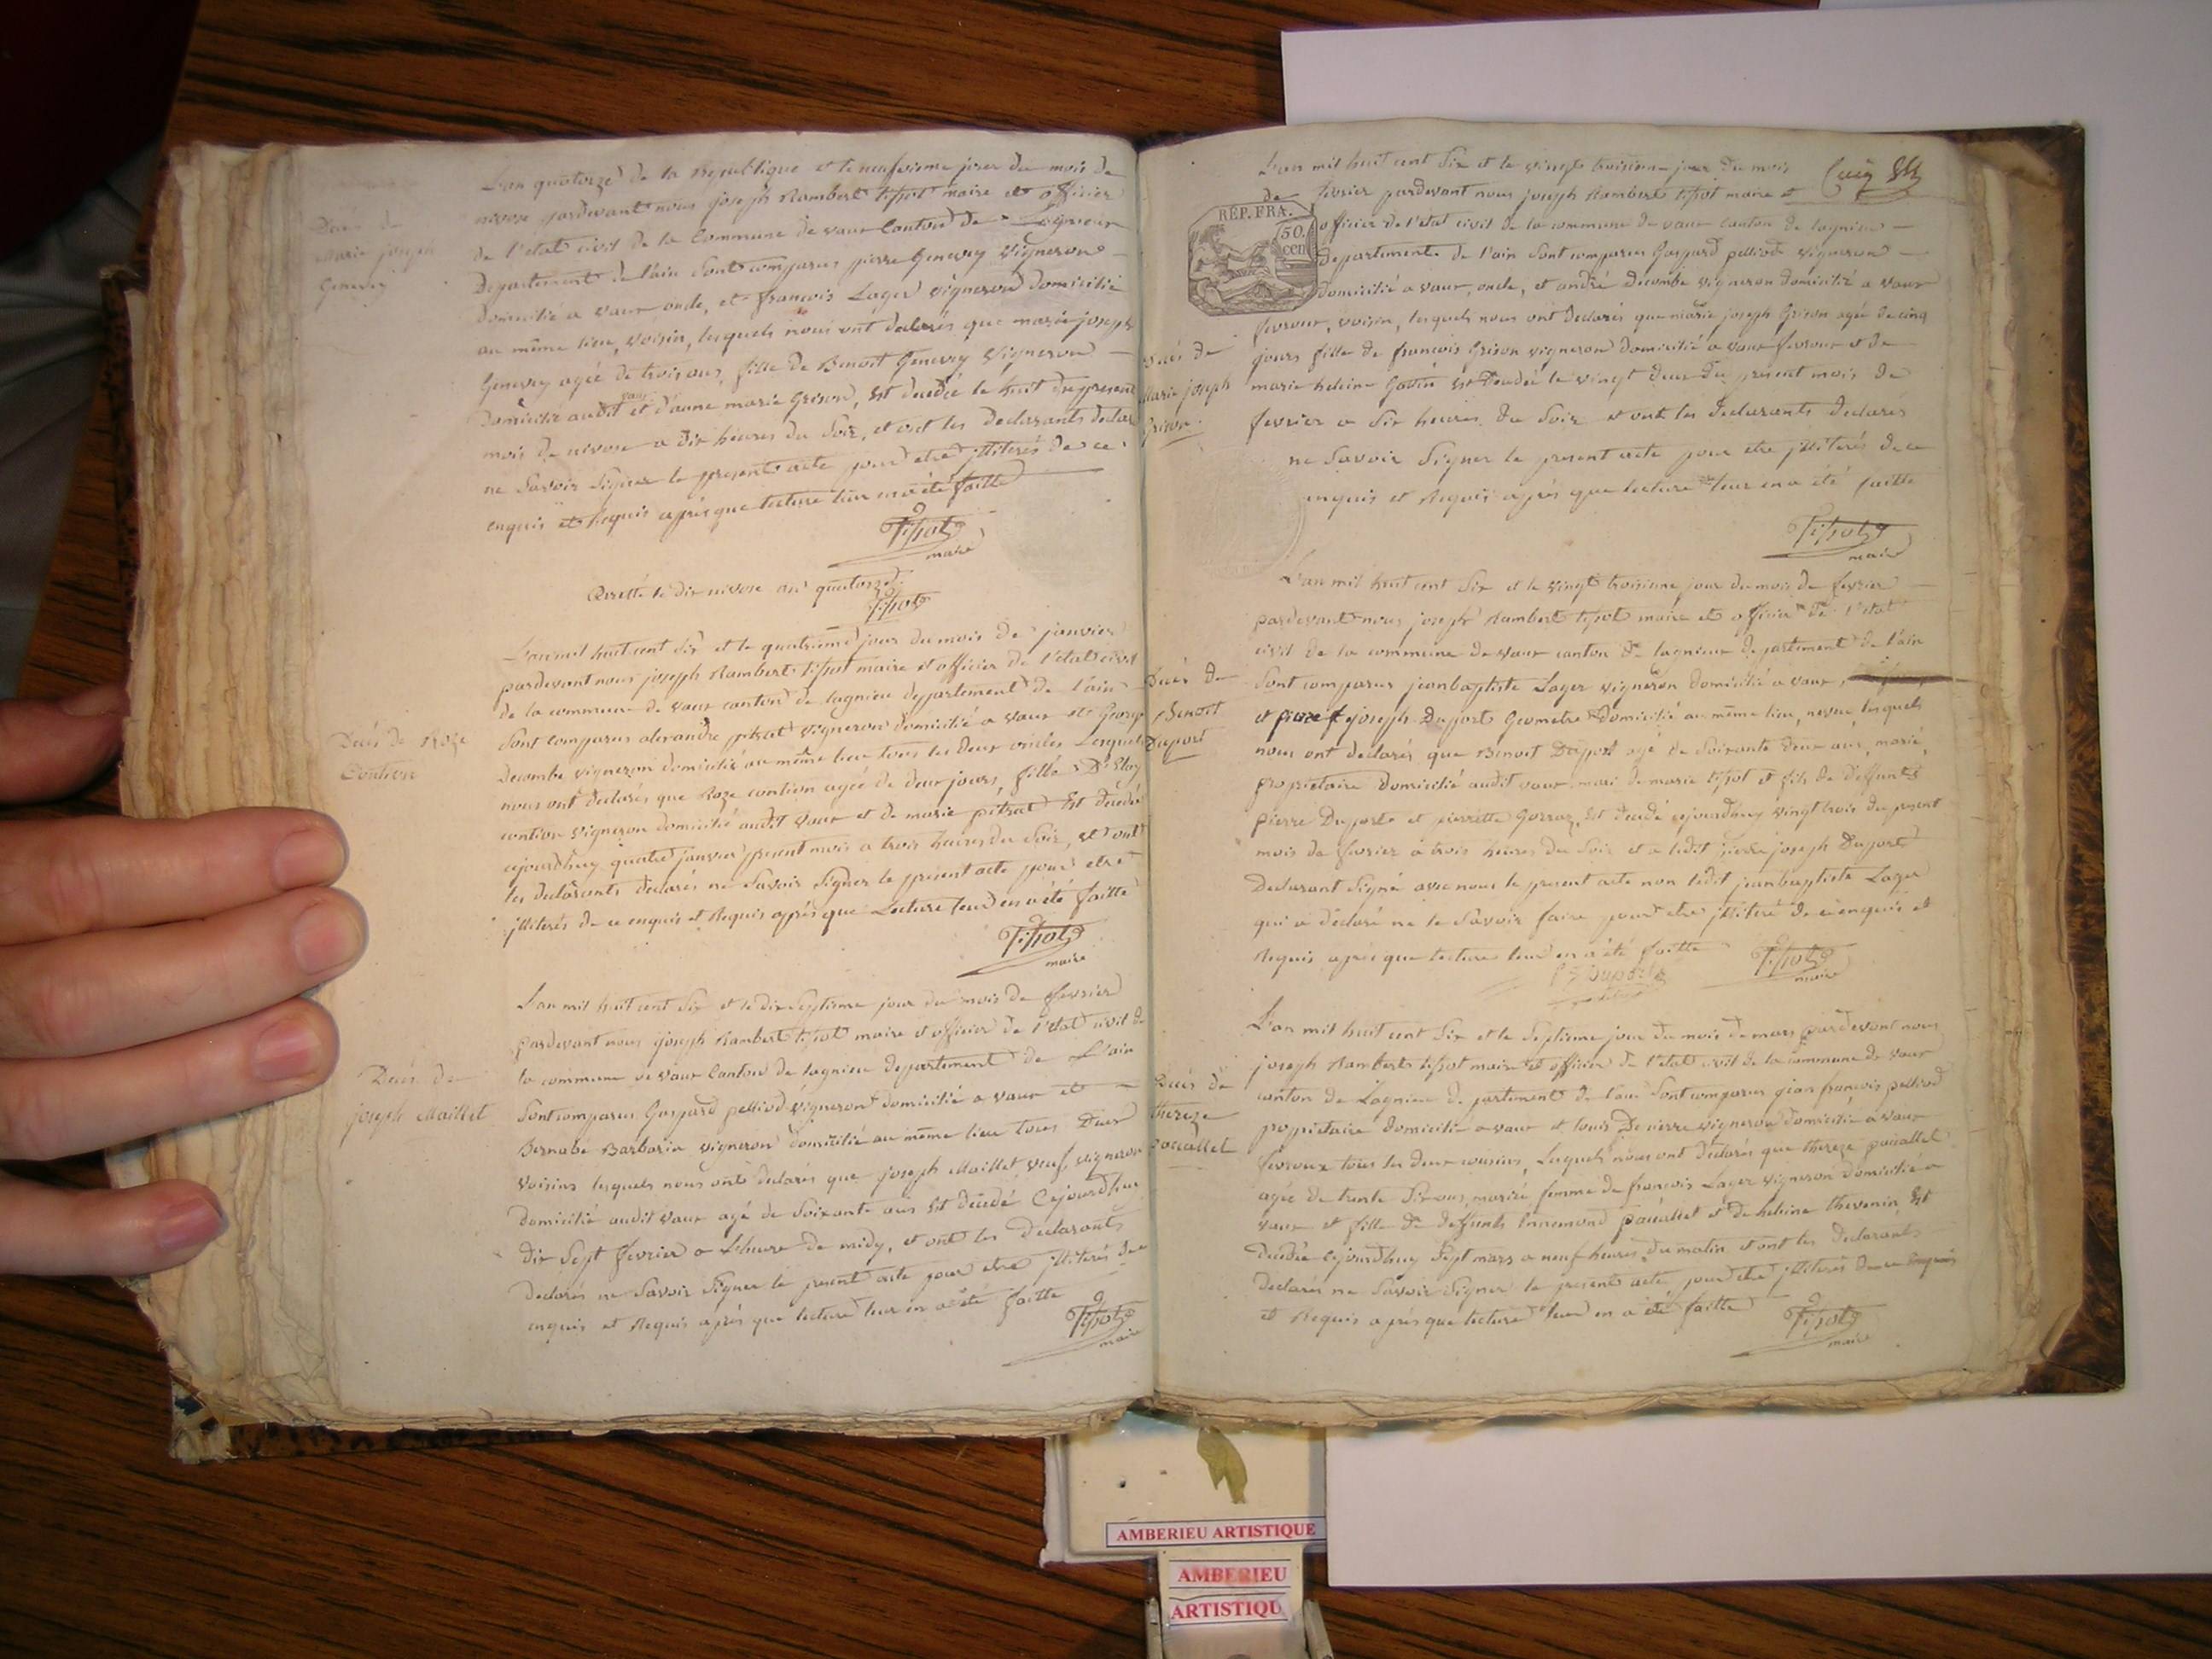 Décès de
marie joseph
Genevey
L'an quatorze de la republique et le neufvieme jour du mois de
nivose pardevant nous joseph Rambert tissot maire et officier
de l'etat civil de la Commune de vaux Canton de Lagnieux
Departement de l'ain sont comparus pierre Genevey vigneron
domicilié a vaux oncle, et francois Lager vigneron domicilié
au même lieu, voisin, lesquels nous ont declarés que marie joseph
Genevey agée de trois ans, fille de Benoit Genevey vigneron
domicilié audit vaux et d'anne marie Grison, est decedée le huit du present
mois de nivose a dix heures du soir, et ont les declarants declaré
ne savoir signer le present acte pour etre illiterés de ce
enquis et Requis après que lecture leur en a été faitte
Tissot
maire
Arretté le dix nivose an quatorze
Tissot
Décès de Roze
Contion
L'an mil huit cent six et le quatrieme jour du mois de janvier
pardevant nous joseph Rambert tissot maire et officier de l'etat civil
de la commune de vaux canton de lagnieu departement de l'ain
sont comparus alexandre pitrat vigneron domicilié a vaux et George
Decombe vigneron domicilié au même lieu tous les deux oncles Lesquels
nous ont declarés que Roze contion agée de deux jours, fille D'Eloy
contion vigneron domicilié audit vaux et de marie pitrat Est decedée
cejourdhuy quatre janvier present mois a trois heures du soir, et ont
les declarants declarés ne savoir signer le present acte pour etre
illiterés de ce enquis et Requis après que Lecture leur en a été faitte
Tissot
maire
Décès de
joseph Maillet
L'an mil huit cent six et le dix septieme jour du mois de fevrier
pardevant nous joseph Rambert tissot maire et officier de l'etat civil de
la commune de vaux Canton de lagnieu departement de L'ain
sont comparus Gaspard pelliod vigneron domicilié a vaux et
Bernabé Barbarin vigneron domicilié au même lieu tous Deux
voisins lesquels nous ont declarés que joseph Maillet veuf, vigneron
domicilié audit vaux agé de soixante ans est decedé Cejourdhuy
dix sept fevrier a L'heure de midy, et ont les Declarants
declarés ne savoir signer le present acte pour etre illiterés de ce
enquis et Requis après que lecture leur en a été faitte
Tissot
maire
L'an mil huit cent six et le vingt troisieme jour du mois
de fevrier pardevant nous joseph Rambert tissot maire et
REP. FRA.
50.
cen
officier de l'etat civil de la commune de vaux canton de lagnieu
departement de l'ain sont comparus Gaspard pelliod vigneron
domicilié a vaux, oncle, et andré decombe vigneron domicilié a vaux
fevroux, voisin, lesquels nous ont declarés que marie joseph Grison agée de cinq
Décès de
Marie joseph
Grison
jours fille de francois Grison vigneron domicilié a vaux fevroux et de
marie heleine Gavin est decedée le vingt deux du present mois de
fevrier a six heures du soir et ont les declarants declarés
ne savoir signer le present acte pour etre illiterés de ce
enquis et Requis après que lecture leur en a été faitte
Tissot
maire
L'an mil huit cent six et le vingt troisieme jour du mois de fevrier
pardevant nous joseph Rambert tissot maire et officier de l'etat
civil de la commune de vaux canton de lagnieux departement de l'ain
Décès de
Benoit
Duport
sont comparus jeanbaptiste Lager vigneron domicilié a vaux,
et pierre joseph Duport Geometre domicilié au même lieu, neveu, lesquels
nous ont declarés que Benoit Duport agé de soixante deux ans, marié,
propriétaire domicilié audit vaux mari de marie tissot et fils de deffunts
pierre Duport et pierrette Gorraz, est decedé cejourdhuy vingt trois du present
mois de fevrier a trois heures du soir et a ledit pierre joseph Duport
declarant signé avec nous le present acte non ledit jeanbaptiste Lager
qui a declaré ne le savoir faire pour etre illiteré de ce enquis et
Requis après que lecture leur en a été faitte
PJ Duport
Tissot
maire
L'an mil huit cent six et le septieme jour du mois de mars pardevant nous
joseph Rambert tissot maire et officier de l'etat civil de la commune de vaux
Décès de
thereze
pouallet
canton de Lagnieu departement de l'ain sont comparus jean francois pelliod
propriétaire domicilié a vaux et louis Decierre vigneron domicilié a vaux
fevroux tous les deux voisins, Lesquels nous ont declarés que thereze pouallet
agée de trente six ans, mariée femme de francois Lager vigneron domicilié a
vaux et fille de deffunts Ennemond pouallet et de heleine thevenin, Est
decedée cejourdhuy sept mars a neuf heures du matin et ont les declarants
declarés ne savoir signer le present acte pour etre illiterés de ce enquis
et Requis après que lecture leur en a été faitte
Tissot
maire
AMBERIEU ARTISTIQUE
AMBERIEU
ARTISTIQU